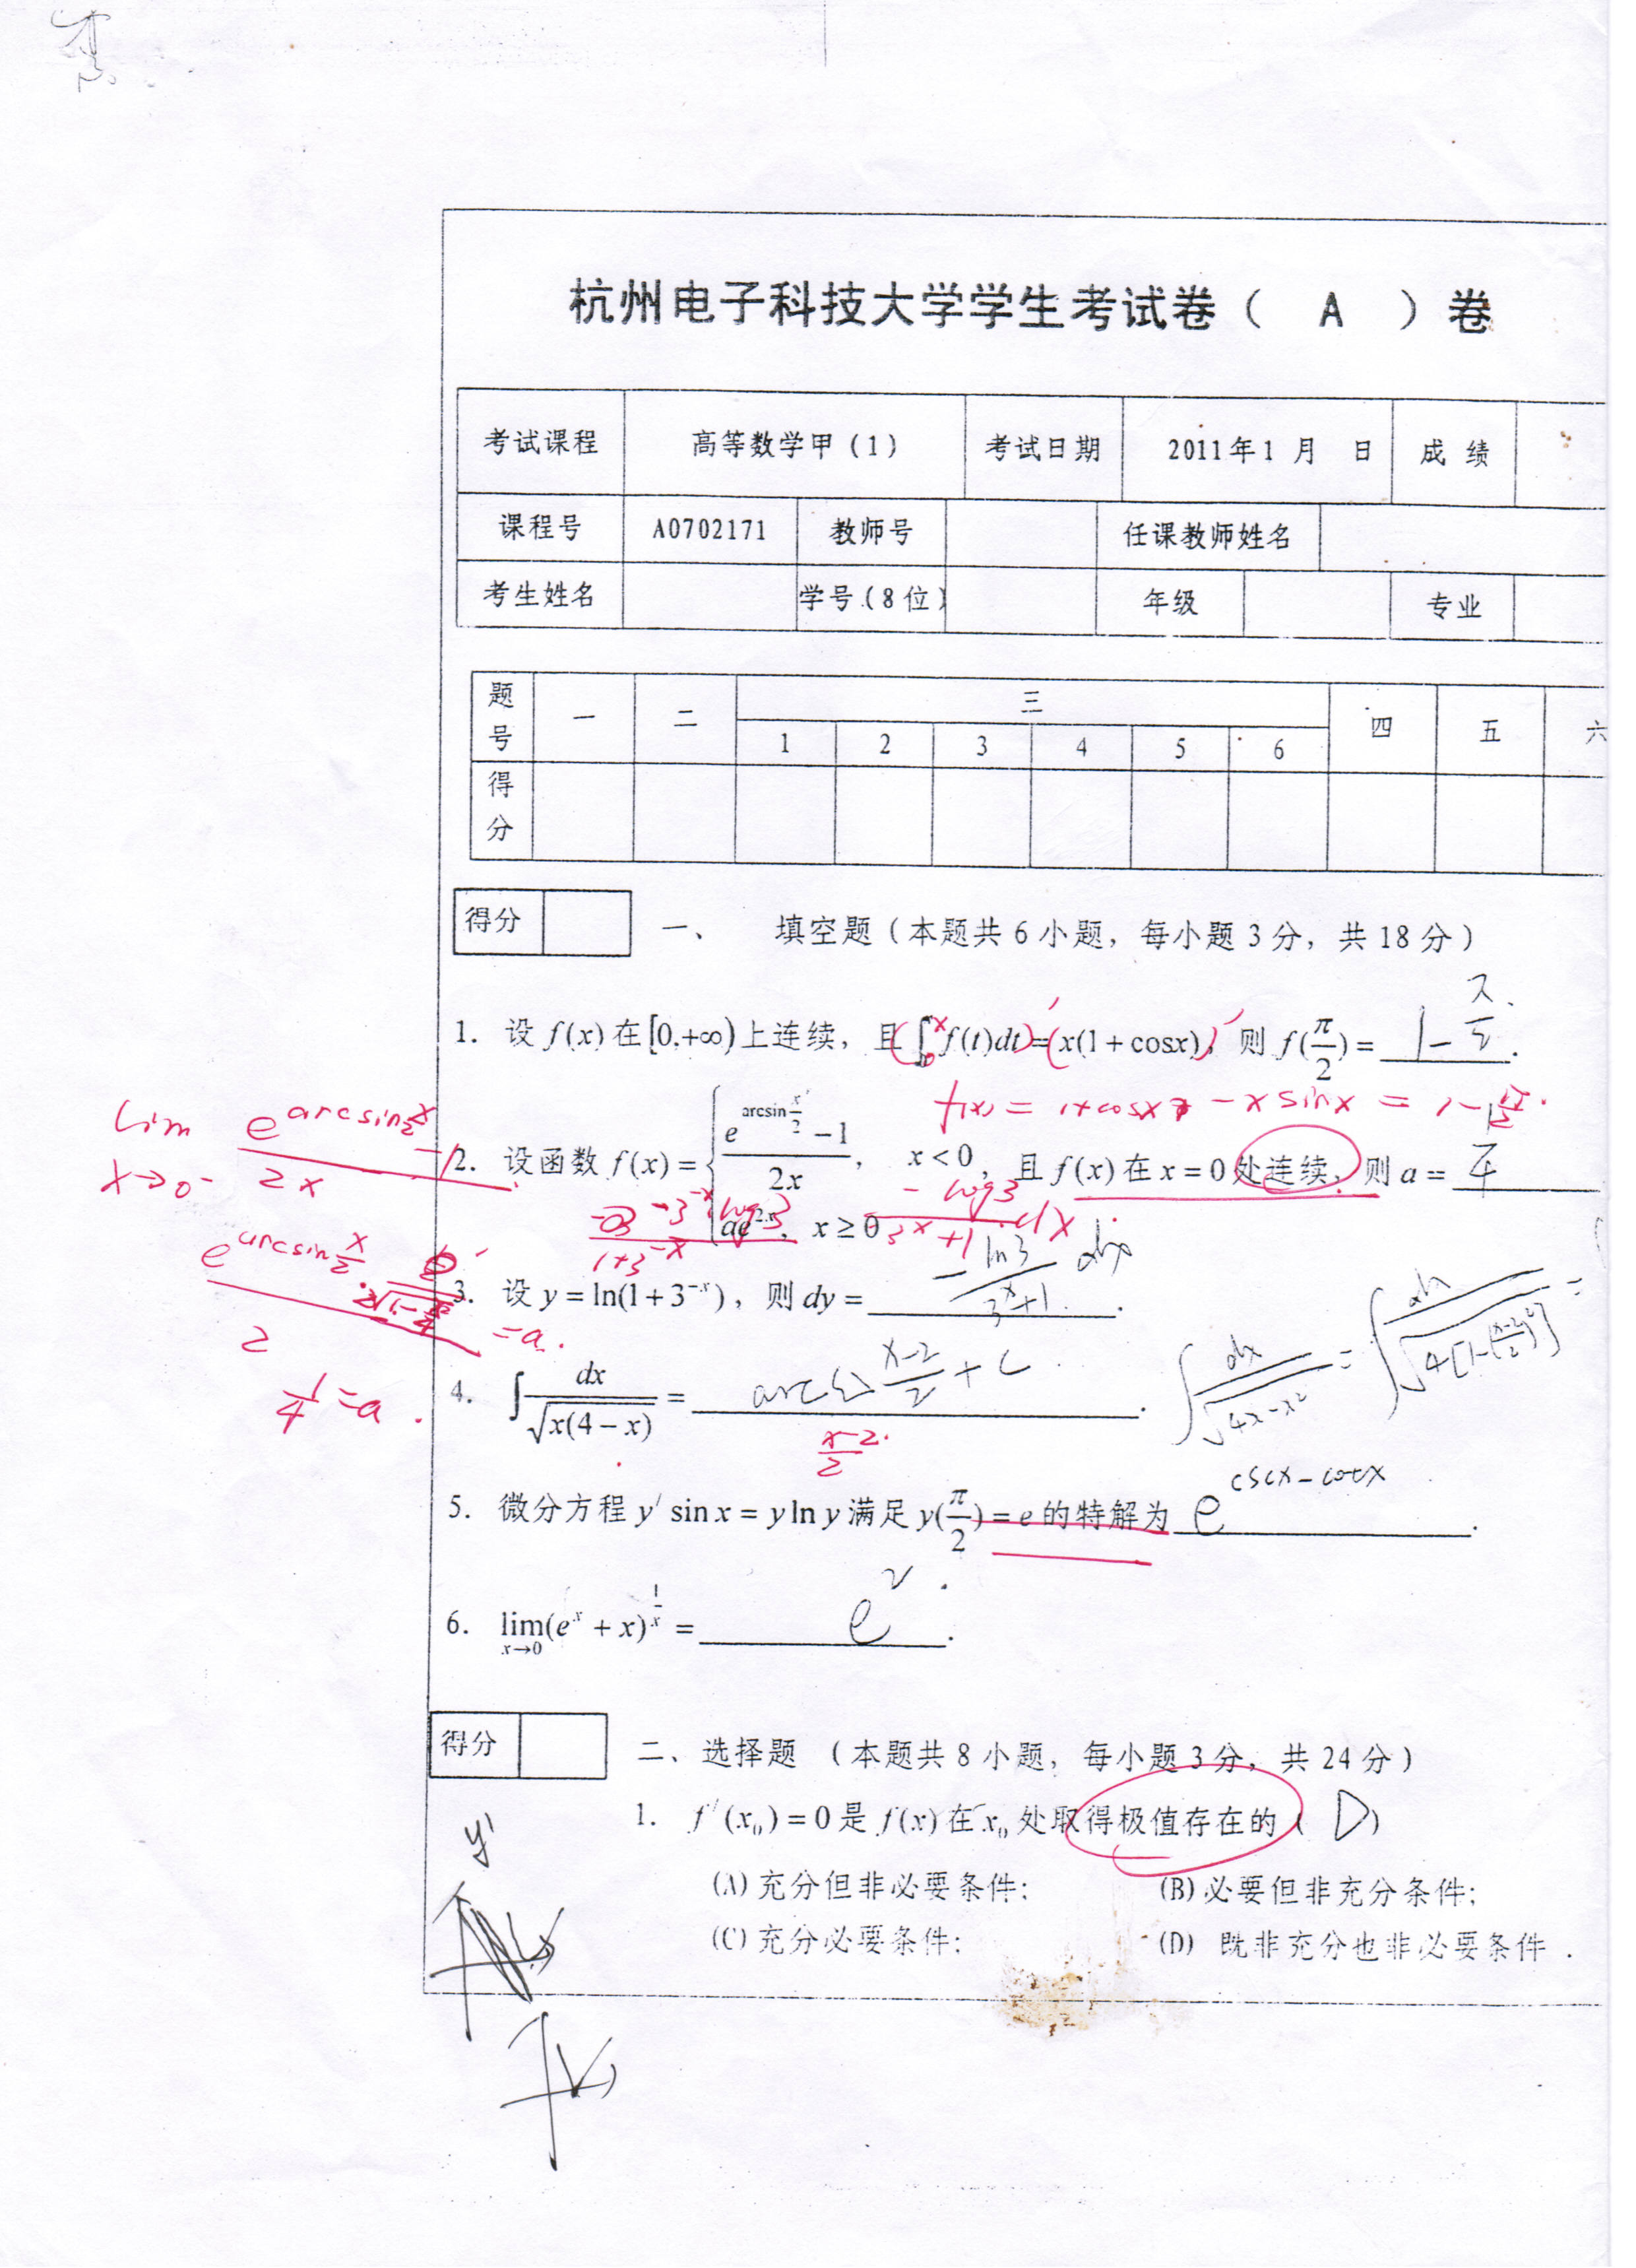 杭州电子科技大学学生考试卷（ A ）卷
考试课程 高等数学甲（1） 考试日期 2011年1 月 日 成 绩
课程号 A0702171 教师号 任课教师姓名
考生姓名 学号（8位） 年级 专业
题号 一 二 三 四 五 六
1 2 3 4 5 6
得分
得分
一、 填空题（本题共6小题，每小题3分，共18分）
1. 设 f(x) 在 [0,+∞) 上连续，且 (∫₀ˣ f(t)dt)′=(x(1+cosx))′，则 f(π/2) = 1-π/2 .
f(x) = 1+cosx - x sinx = 1-π/2.
lim x→0⁻ (e^(arcsin x/2) -1)/(2x)
2. 设函数 f(x) = { (e^(arcsin x/2) -1)/(2x), x<0, ae^(2x), x≥0 且 f(x) 在 x=0 处连续，则 a = 1/4
-3^(-x)log3/(1+3^(-x)) -log3/(3^x+1)·dx
3. 设 y = ln(1+3^(-x))，则 dy = -ln3/(3^x+1) dx .
2 =a.
1/4 =a.
4. ∫ dx/√(x(4-x)) = arcsin (x-2)/2 + C . ∫ dx/√(4x-x²) = ∫ dx/√(4[1-((x-2)/2)²]) =
(x-2)/2.
5. 微分方程 y′ sin x = y ln y 满足 y(π/2) = e 的特解为 e^(cscx-cotx) .
6. lim x→0 (e^x + x)^(1/x) = e² .
得分
二、选择题 （本题共8小题，每小题3分，共24分）
1. f′(x₀) = 0 是 f(x) 在 x₀ 处取得极值存在的（ D ）
(A) 充分但非必要条件; (B) 必要但非充分条件;
(C) 充分必要条件; (D) 既非充分也非必要条件 .
y′